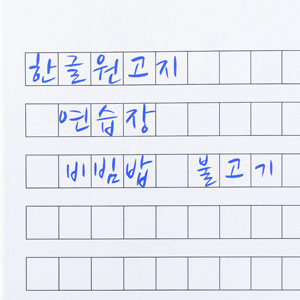 한글원고지
연습장
비빔밥 불고기